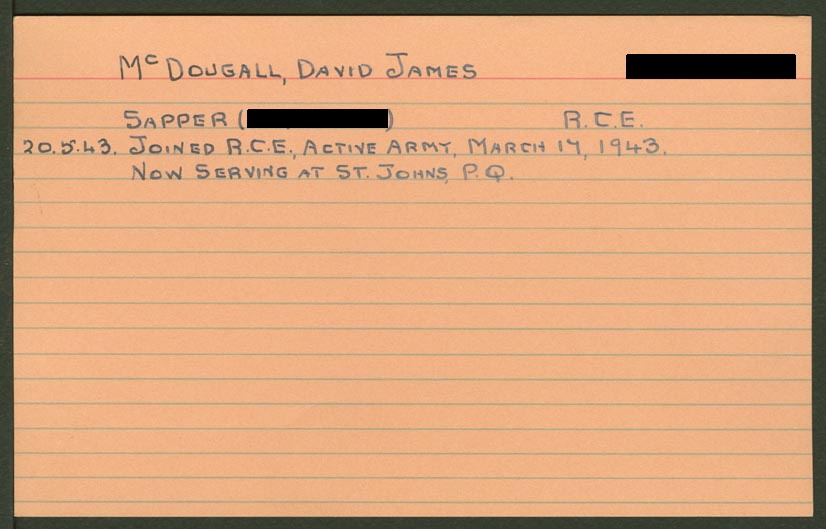 McDOUGALL, DAVID JAMES
SAPPER ( ) R.C.E.
20.5.43. JOINED R.C.E., ACTIVE ARMY, MARCH 17, 1943.
NOW SERVING AT ST. JOHNS, P.Q.